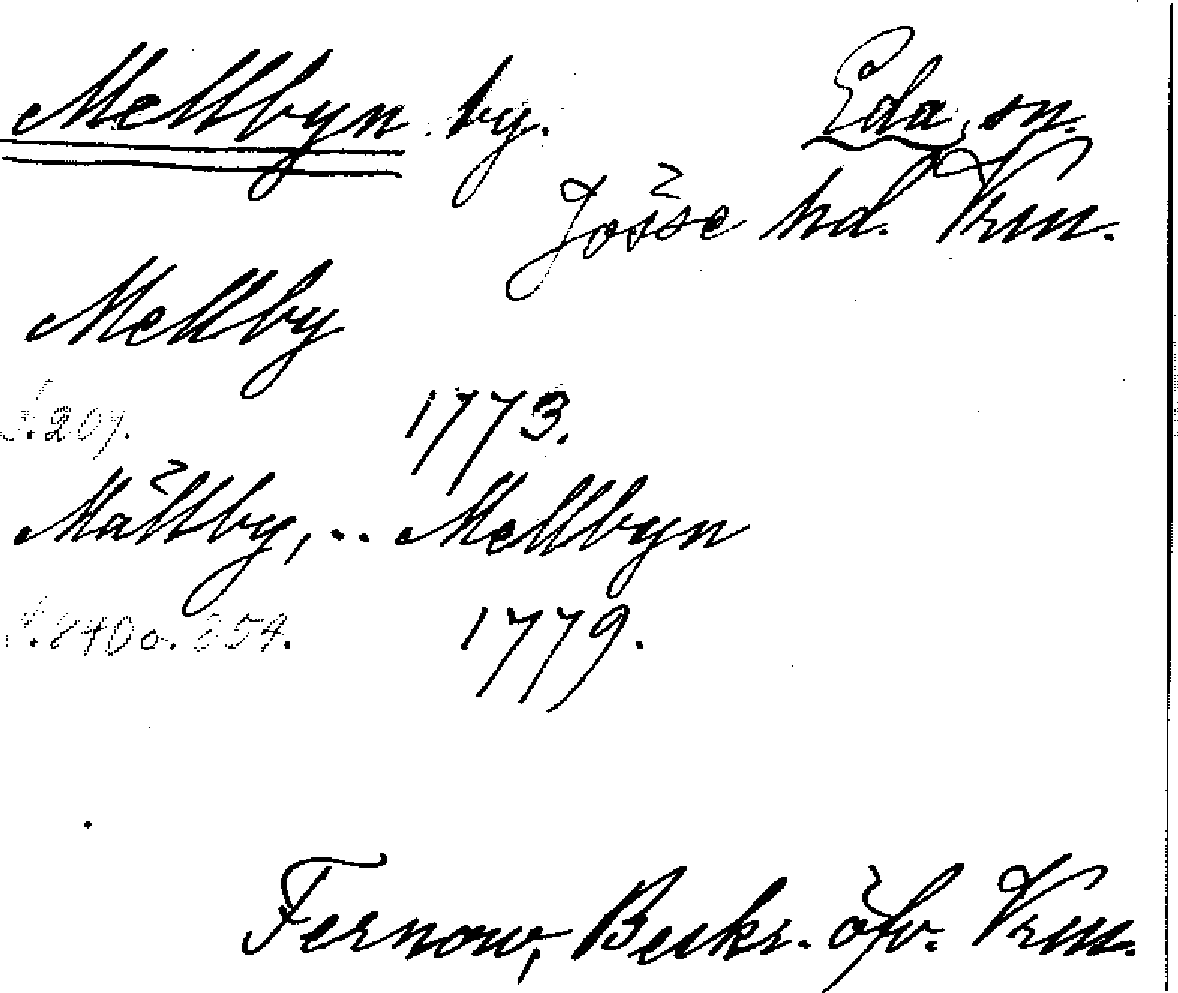 Mellbyn by. Eda sn.
Jösse hd. Vrm.
Mellby
S. 207. 1773.
Mällby, .. Mellbyn
S. 240 o. 254. 1779.
Fernow, Beskr. öfv. Vrm.